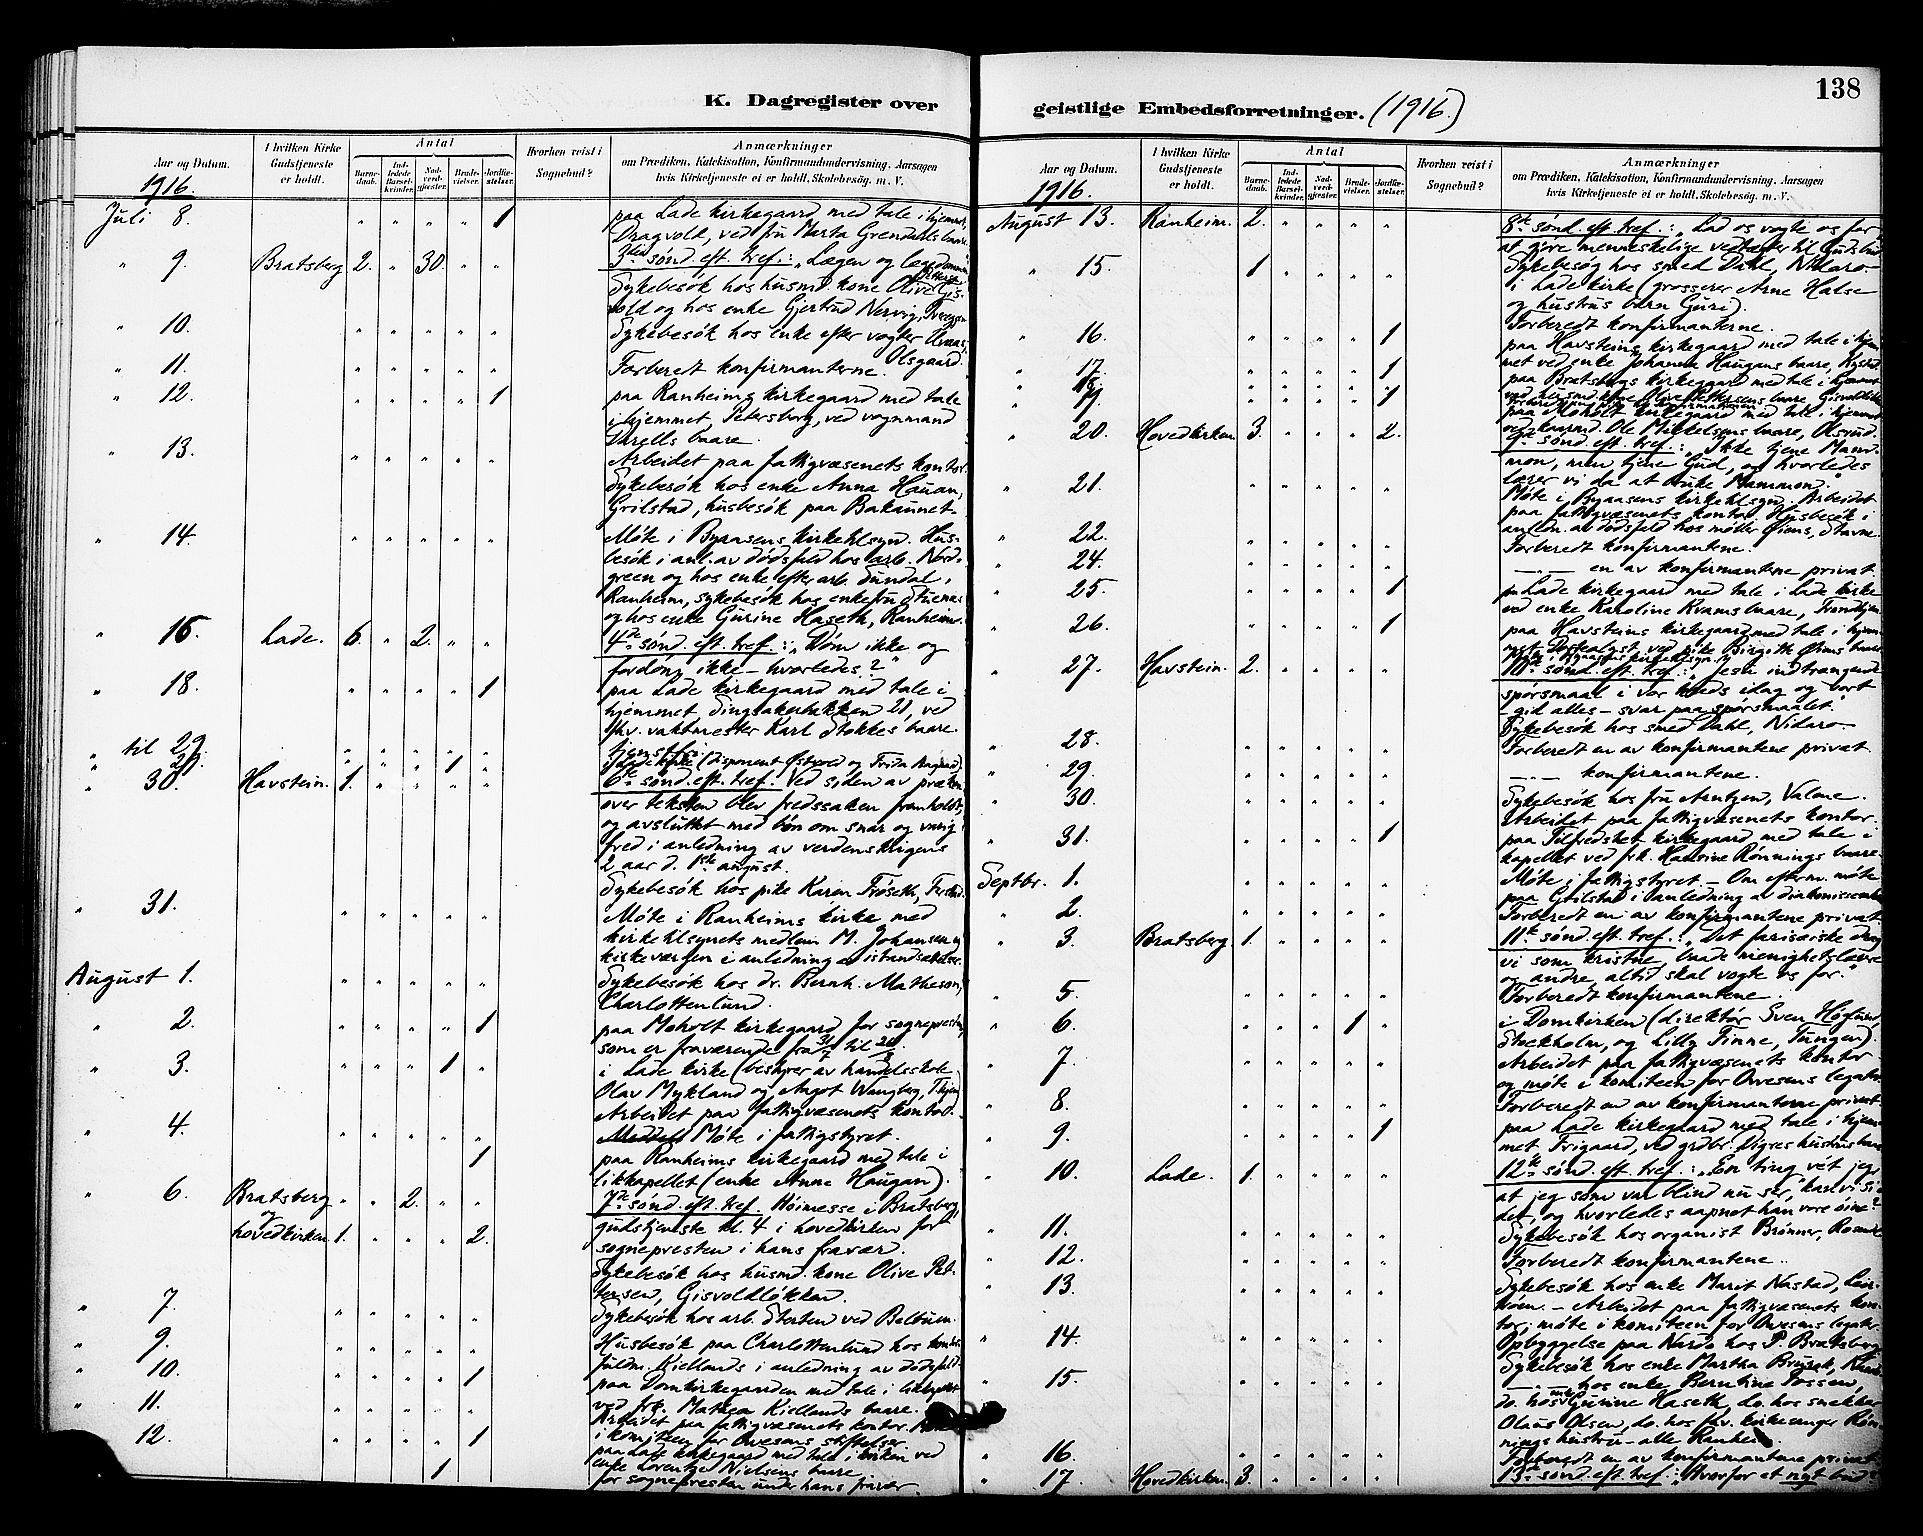 K. Dagregister over
Aar og Datum.
I hvilken Kirke Gudstjeneste er holdt.
Antal
Barnedaab.
Indledede Barselkvinder.
Nadverdgjester.
Brudevielser.
Jordfæstelser.
Hvorhen reist i Sognebud?
Anmærkninger
om Prædiken, Katekisation, Konfirmandundervisning, Aarsagen
hvis Kirketjeneste ei er holdt, Skolebesøg. m. V.
1916.
Juli 8. " " " " 1 paa Lade kirkegaard med tale i hjemmet,
Dragvoll, ved fru Marta Grendahls baare.
" 9. Bratsberg 2. " 30. " " 3die sønd. eft. tref.: „Lægen og lægedommen"
Sykebesøk hos husmd. kone Olive Pettersen, Gis-
vold og hos enke Gjertrud Nervig,
" 10. " " " " " Sykebesøk hos enke efter vogter Aaraas,
Olsgaard.
" 11. " " " " " Forberet konfirmanterne.
" 12. " " " " 1 paa Ranheims kirkegaard med tale
i hjemmet, Petersborg, ved vognmand
baare.
" 13. " " " " " Arbeidet paa fattigvæsenets kontor.
Sykebesøk hos enke Anna Hauan,
Grilstad, husbesøk paa Bakaunet.
" 14. " " " " " Møte i Byaasens kirketilsyn. Hus-
besøk i anl. av dødsfald hos arb. Nord-
green og hos enke efter arb. Sundal,
Ranheim, sykebesøk hos enkefru
og hos enke Gurine Haseth, Ranheim.
" 16. Lade. 6. " 2. " " 4de sønd. eft. tref.: „Døm ikke og
fordøm ikke – hvorledes?"
" 18. " " " " 1 paa Lade kirkegaard med tale i
hjemmet Singsakerbakken 21, ved
fhv. vaktmester Karl Stokkes baare.
" til 29. " " " " " tjenstfri.
" 29. " " " 1 " Lade kirke (disponent Østvold og Frida
" 30. Havstein. 1. " " " " 6te sønd. eft. tref. Ved siden av præken
over teksten blev fredssaken fremholdt,
og avsluttet med bøn om snar og varig
fred i anledning av verdenskrigens
2 aar d. 1ste august.
Sykebesøk hos pike Karen Frøseth,
" 31. " " " " " Møte i Ranheims kirke med
kirketilsynets medlem M. Johansen og
kirkeværgen i anledning av istandsættelse.
August 1. " " " " " Sykebesøk hos dr. Bernh. Matheson,
Charlottenlund.
" 2. " " " " 1 paa Moholt kirkegaard for sognepresten,
som er fraværende fra 31/7 til
" 3. " " " 1 " i Lade kirke (bestyrer av handelsskole
Olav Mykland og Aagot Wangberg, Thjem
Arbeidet paa fattigvæsenets kontor.
" 4. " " " " " Møte i fattigstyret.
1 paa Ranheims kirkegaard med tale i
likkapellet (enke Anne Haugan).
" 6. Bratsberg " " 2. " " 7de sønd. eft. tref. Høimesse i Bratsberg,
og
hovedkirken. 1. " " " 2. gudstjeneste kl. 4 i hovedkirken for
sognepresten i hans fravær.
Sykebesøk hos husmd. kone Olive Pet-
tersen, Gisvoldløkken.
" 7. " " " " " Sykebesøk hos arb. Sterten ved Belbuen.
" 9. " " " " " Husbesøk paa Charlottenlund hos
fuldm. Kiellands i anledning av dødsfald.
" 10. " " " " 1 paa Domkirkegaarden med tale i likkapellet
ved frk. Mathea Kiellands baare.
" 11. " " " " " Arbeidet paa fattigvæsenets kontor.
i komiteen for Owesens stiftelser
" 12. " " " " 1 paa Lade kirkegaard med tale i kirken ved
enke Lorentze Nielsens baare
1 for sognepresten under hans fravær.
138
geistlige Embedsforretninger. (1916.)
Aar og Datum.
I hvilken Kirke Gudstjeneste er holdt.
Antal
Barnedaab.
Indledede Barselkvinder.
Nadverdgjester.
Brudevielser.
Jordfæstelser.
Hvorhen reist i Sognebud?
Anmærkninger
om Prædiken, Katekisation, Konfirmandundervisning, Aarsagen
hvis Kirketjeneste ei er holdt, Skolebesøg. m. V.
1916.
August 13. Ranheim. 2. " " " " 8de sønd. eft. tref.: „Lad os vogte os for
at gjøre menneskelige vedtægter til Guds bud
" 15. 1 " " " " Sykebesøg hos smed Dahl, Nidarø.
i Lade kirke (grosserer Arne Halse
og hustrus barn Guri).
Forberedt konfirmanterne.
" 16. " " " " 1 paa Havsteins kirkegaard med tale i hjem-
met ved enke Johanna Haugans baare, Kystad.
" 17. " " " " 1 paa Bratsbergs kirkegaard med tale i hjemmet
ved husmd. kone Olive Pettersens baare, Gisvoldløkken
" 18. " " " " "
" 19. " " " " 1 paa Moholt kirkegaard med tale i hjemmet
ved skaarmd. Ole Mikkelsens baare, Olsrud.
" 20. Hovedkirken. 3. " " " 2. 9de sønd. eft. tref.: „Ikke tjene Mam-
mon, men tjene Gud, og hvorledes
lærer vi da at bruke Mammon."
" 21. " " " " " Møte i Byaasens kirketilsyn. Arbeidet
paa fattigvæsenets kontor. Husbesøk i
anledn. av dødsfald hos møller Øiens, Stavne.
" 22. " " " " " Forberedt konfirmantene.
" 24. " " " " " — " — en av konfirmantene privat.
" 25. " " " " 1 paa Lade kirkegaard med tale i Lade kirke
ved enke Karoline Kvams baare, Trondhjem
" 26. " " " " 1 paa Havsteins kirkegaard med tale i hjem-
met ved pike Birgitte Øiens baare
" 27. Havstein. 2. " " " " 10de sønd. eft. tref.: „Jesu indtrængende
spørsmaal i vor kreds idag og vort
– gid alles – svar paa spørsmaalet."
Sykebesøk hos smed Dahl, Nidarø.
" 28. " " " " " Forberedt en av konfirmantene privat.
" 29. " " " " " — " — konfirmantene.
" 30. " " " " " Sykebesøk hos fru Arntzen, Valene.
Arbeidet paa fattigvæsenets kontor.
" 31. " " " " 1 paa Tilfredshet kirkegaard med tale i
kapellet ved frk. Hansine Rønnings baare.
Septbr. 1. " " " " " Møte i fattigstyret. – Om efterm. møte
paa Grilstad i anledning av diakonissesaken
" 2. " " " " " Forberedt en av konfirmantene privat.
" 3. Bratsberg. 1. " " " " 11te sønd. eft. tref.: „Det farisæiske drag
vi som kristne, baade menighetslærere
og andre, altid skal vogte os for."
" 5. " " " " " Forberedt konfirmantene.
" 6. " " " 1 " i Domkirken (direktør Sven Høglund,
Stockholm, og Lilly Finne, Tungen).
" 7. " " " " " Arbeidet paa fattigvæsenets kontor
og møte i komiteen for Owesens legater.
" 8. " " " " " Forberedt en av konfirmanterne privat
" 9. " " " " 1 paa Lade kirkegaard med tale i hjem-
met, Frigaard, ved grdbr. Digres hustrus baare
" 10. Lade. 1. " " " " 12te sønd. eft. tref.: „En ting vét jeg
at jeg som var blind nu ser," kan vi si
det, og hvorledes aapnet han vore øine?
" 11. " " " " " Sykebesøk hos organist Brønner,
" 12. " " " " " Forberedt konfirmantene.
" 13. " " " " " Sykebesøk hos enke Marit Nastad,
– Arbeidet paa fattigvæsenets kon-
tor, møte i komiteen for Owesens legater.
" 14. " " " " " Opbyggelse paa Nardo hos P. Bratsberg.
Sykebesøk hos enke Martha Brusæt,
" 15. " " " " " — " — hos enke Berntine Fossen,
do. hos enke Gurine Haseth, do. hos snekker
Olaus Olsen, do. hos fhv. kirkesanger Røn-
nings hustru – alle Ranheim.
" 16. " " " " " Forberedt en av konfirmantene privat
" 17. Hovedkirken. 3. " " " " 13de sønd. eft. tref.: „Hvorfor et nyt bud?